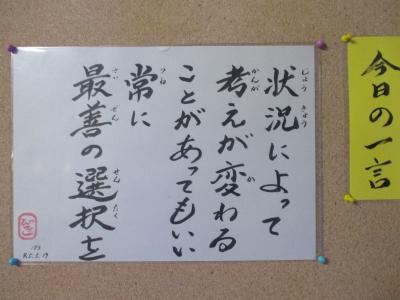 今日の一言
状況によって
考えが変わる
ことがあってもいい
常に
最善の選択を
じょう きょう
かんが
か
つね
さい ぜん
せん たく
193
R5.2.19